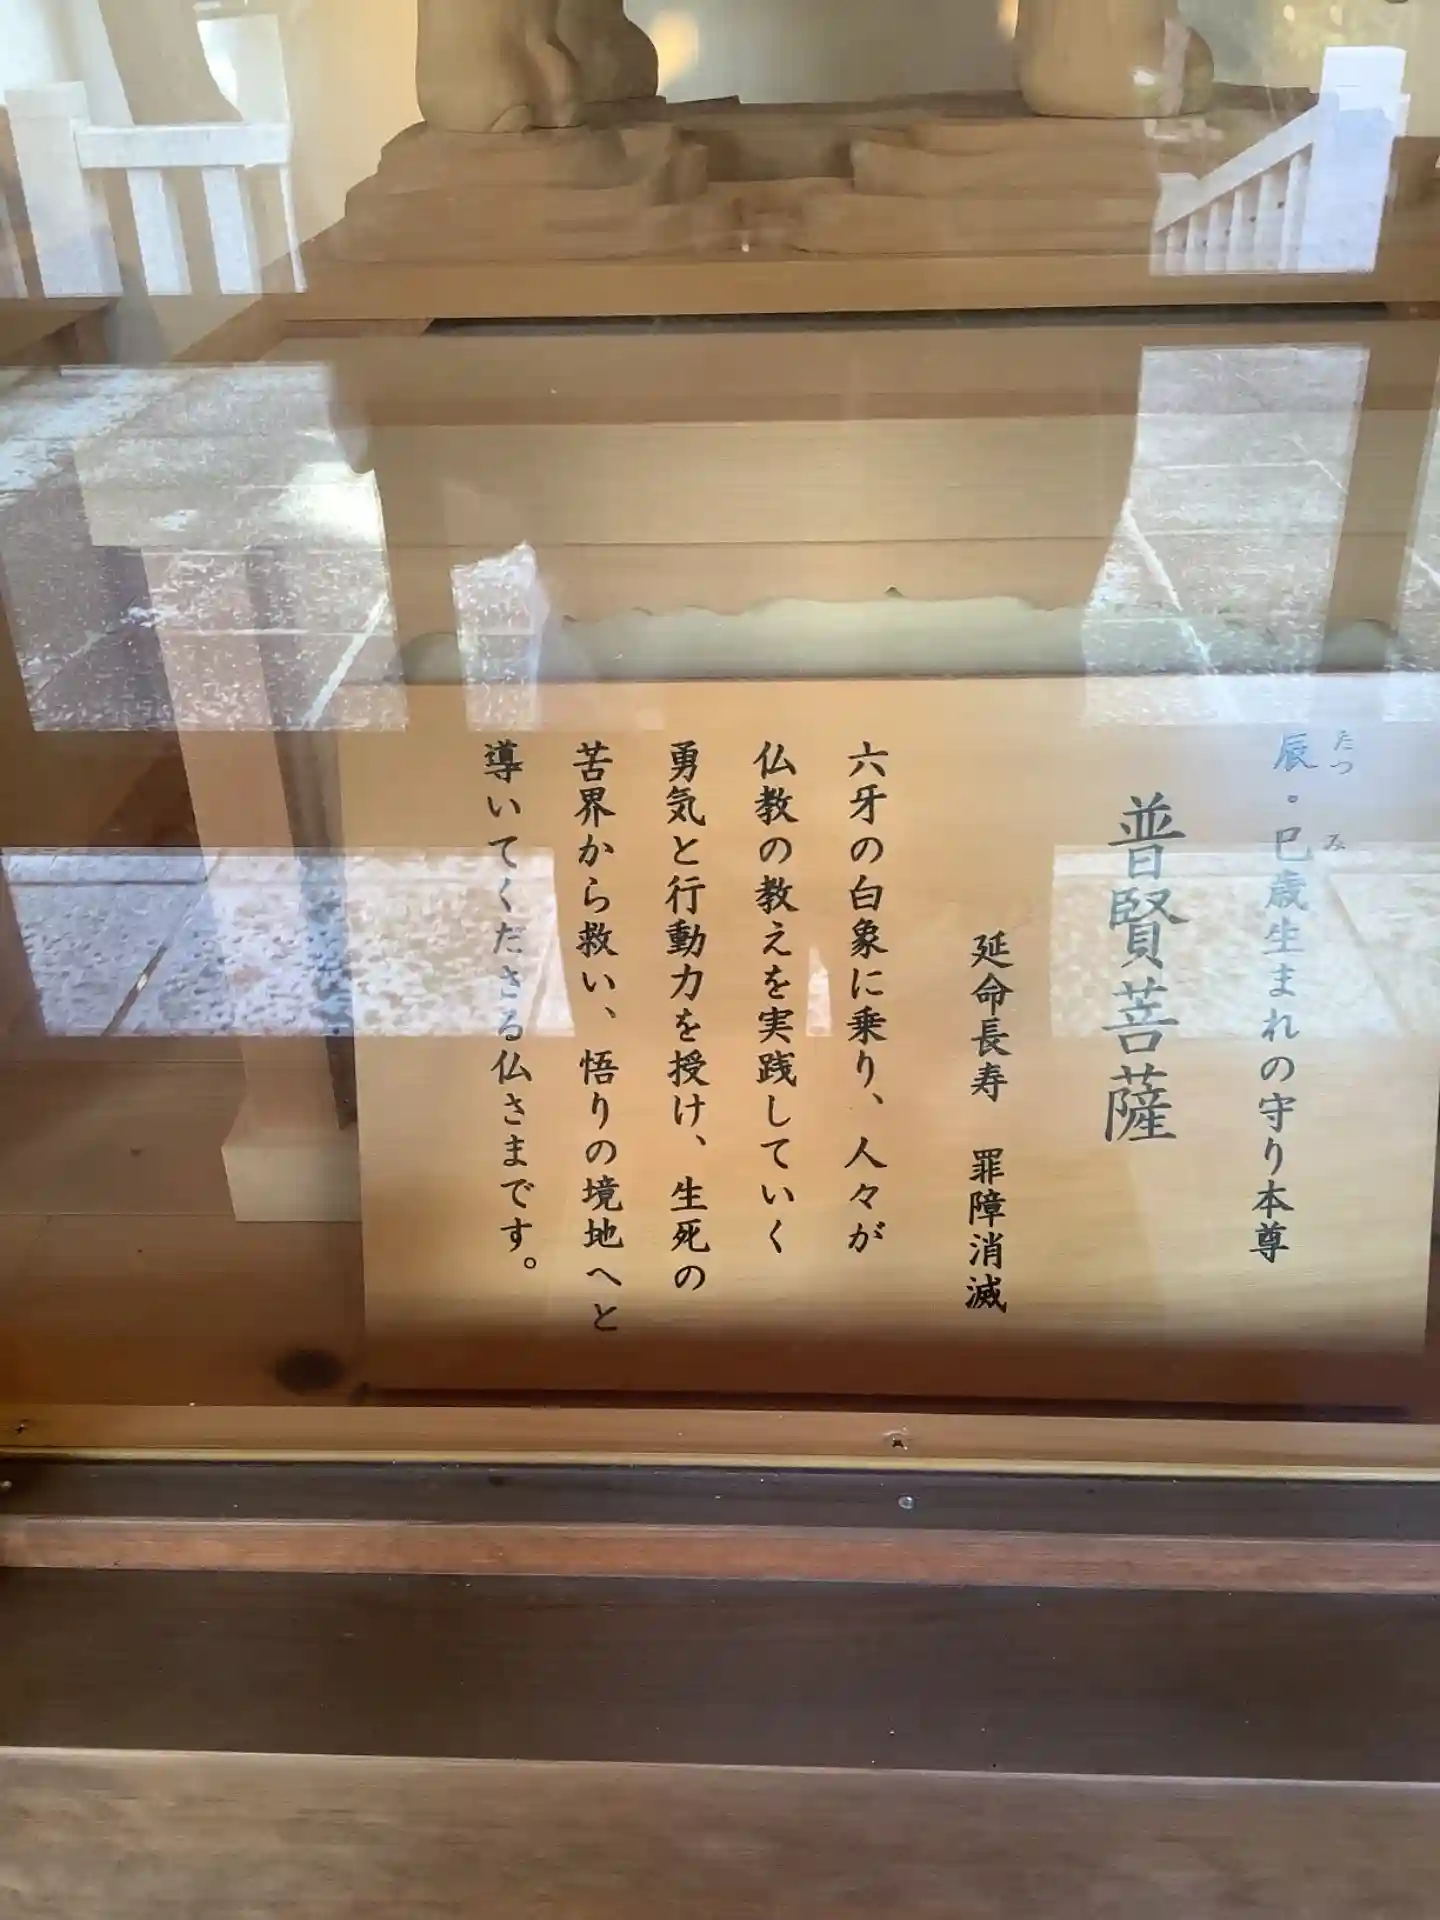 辰・巳歳生まれの守り本尊
たつ　み
普賢菩薩
延命長寿　罪障消滅
六牙の白象に乗り、人々が
仏教の教えを実践していく
勇気と行動力を授け、生死の
苦界から救い、悟りの境地へと
導いてくださる仏さまです。